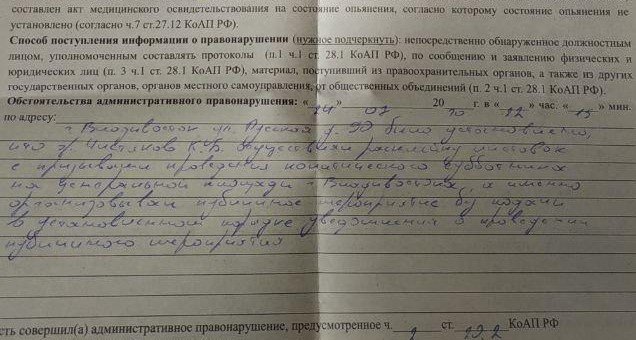 составлен акт медицинского освидетельствования на состояние опьянения, согласно которому состояние опьянения не
установлено (согласно ч.7 ст.27.12 КоАП РФ).
Способ поступления информации о правонарушении (нужное подчеркнуть): непосредственно обнаруженное должностным
лицом, уполномоченным составлять протоколы (п.1 ч.1 ст. 28.1 КоАП РФ), по сообщению и заявлению физических и
юридических лиц (п. 3 ч.1 ст. 28.1 КоАП РФ), материал, поступивший из правоохранительных органов, а также из других
государственных органов, органов местного самоуправления, от общественных объединений (п. 2 ч.1 ст. 28.1 КоАП РФ).
Обстоятельства административного правонарушения: « 24 » 07 20 20 г. в « 22 » час. « 15 » мин.
по адресу:
г. Владивосток ул. Русская д. 90 было установлено,
что гр. Чистяков К.В. осуществлял расклейку листовок
с призывами проведения политического субботника
на центральной площади г. Владивостока, а именно
организовывал публичное мероприятие без подачи
в установленном порядке уведомления о проведении
публичного мероприятия
сть совершил(а) административное правонарушение, предусмотренное ч. ст. 20.2 КоАП РФ